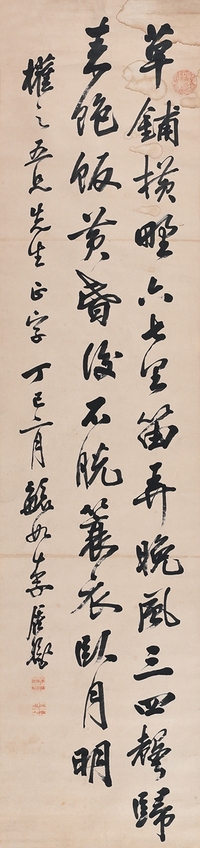 草鋪横野六七里笛弄晚風三四聲歸
来飽飯黄昏後不脱蓑衣臥月明
權之吾兄先生正字丁巳 月 如